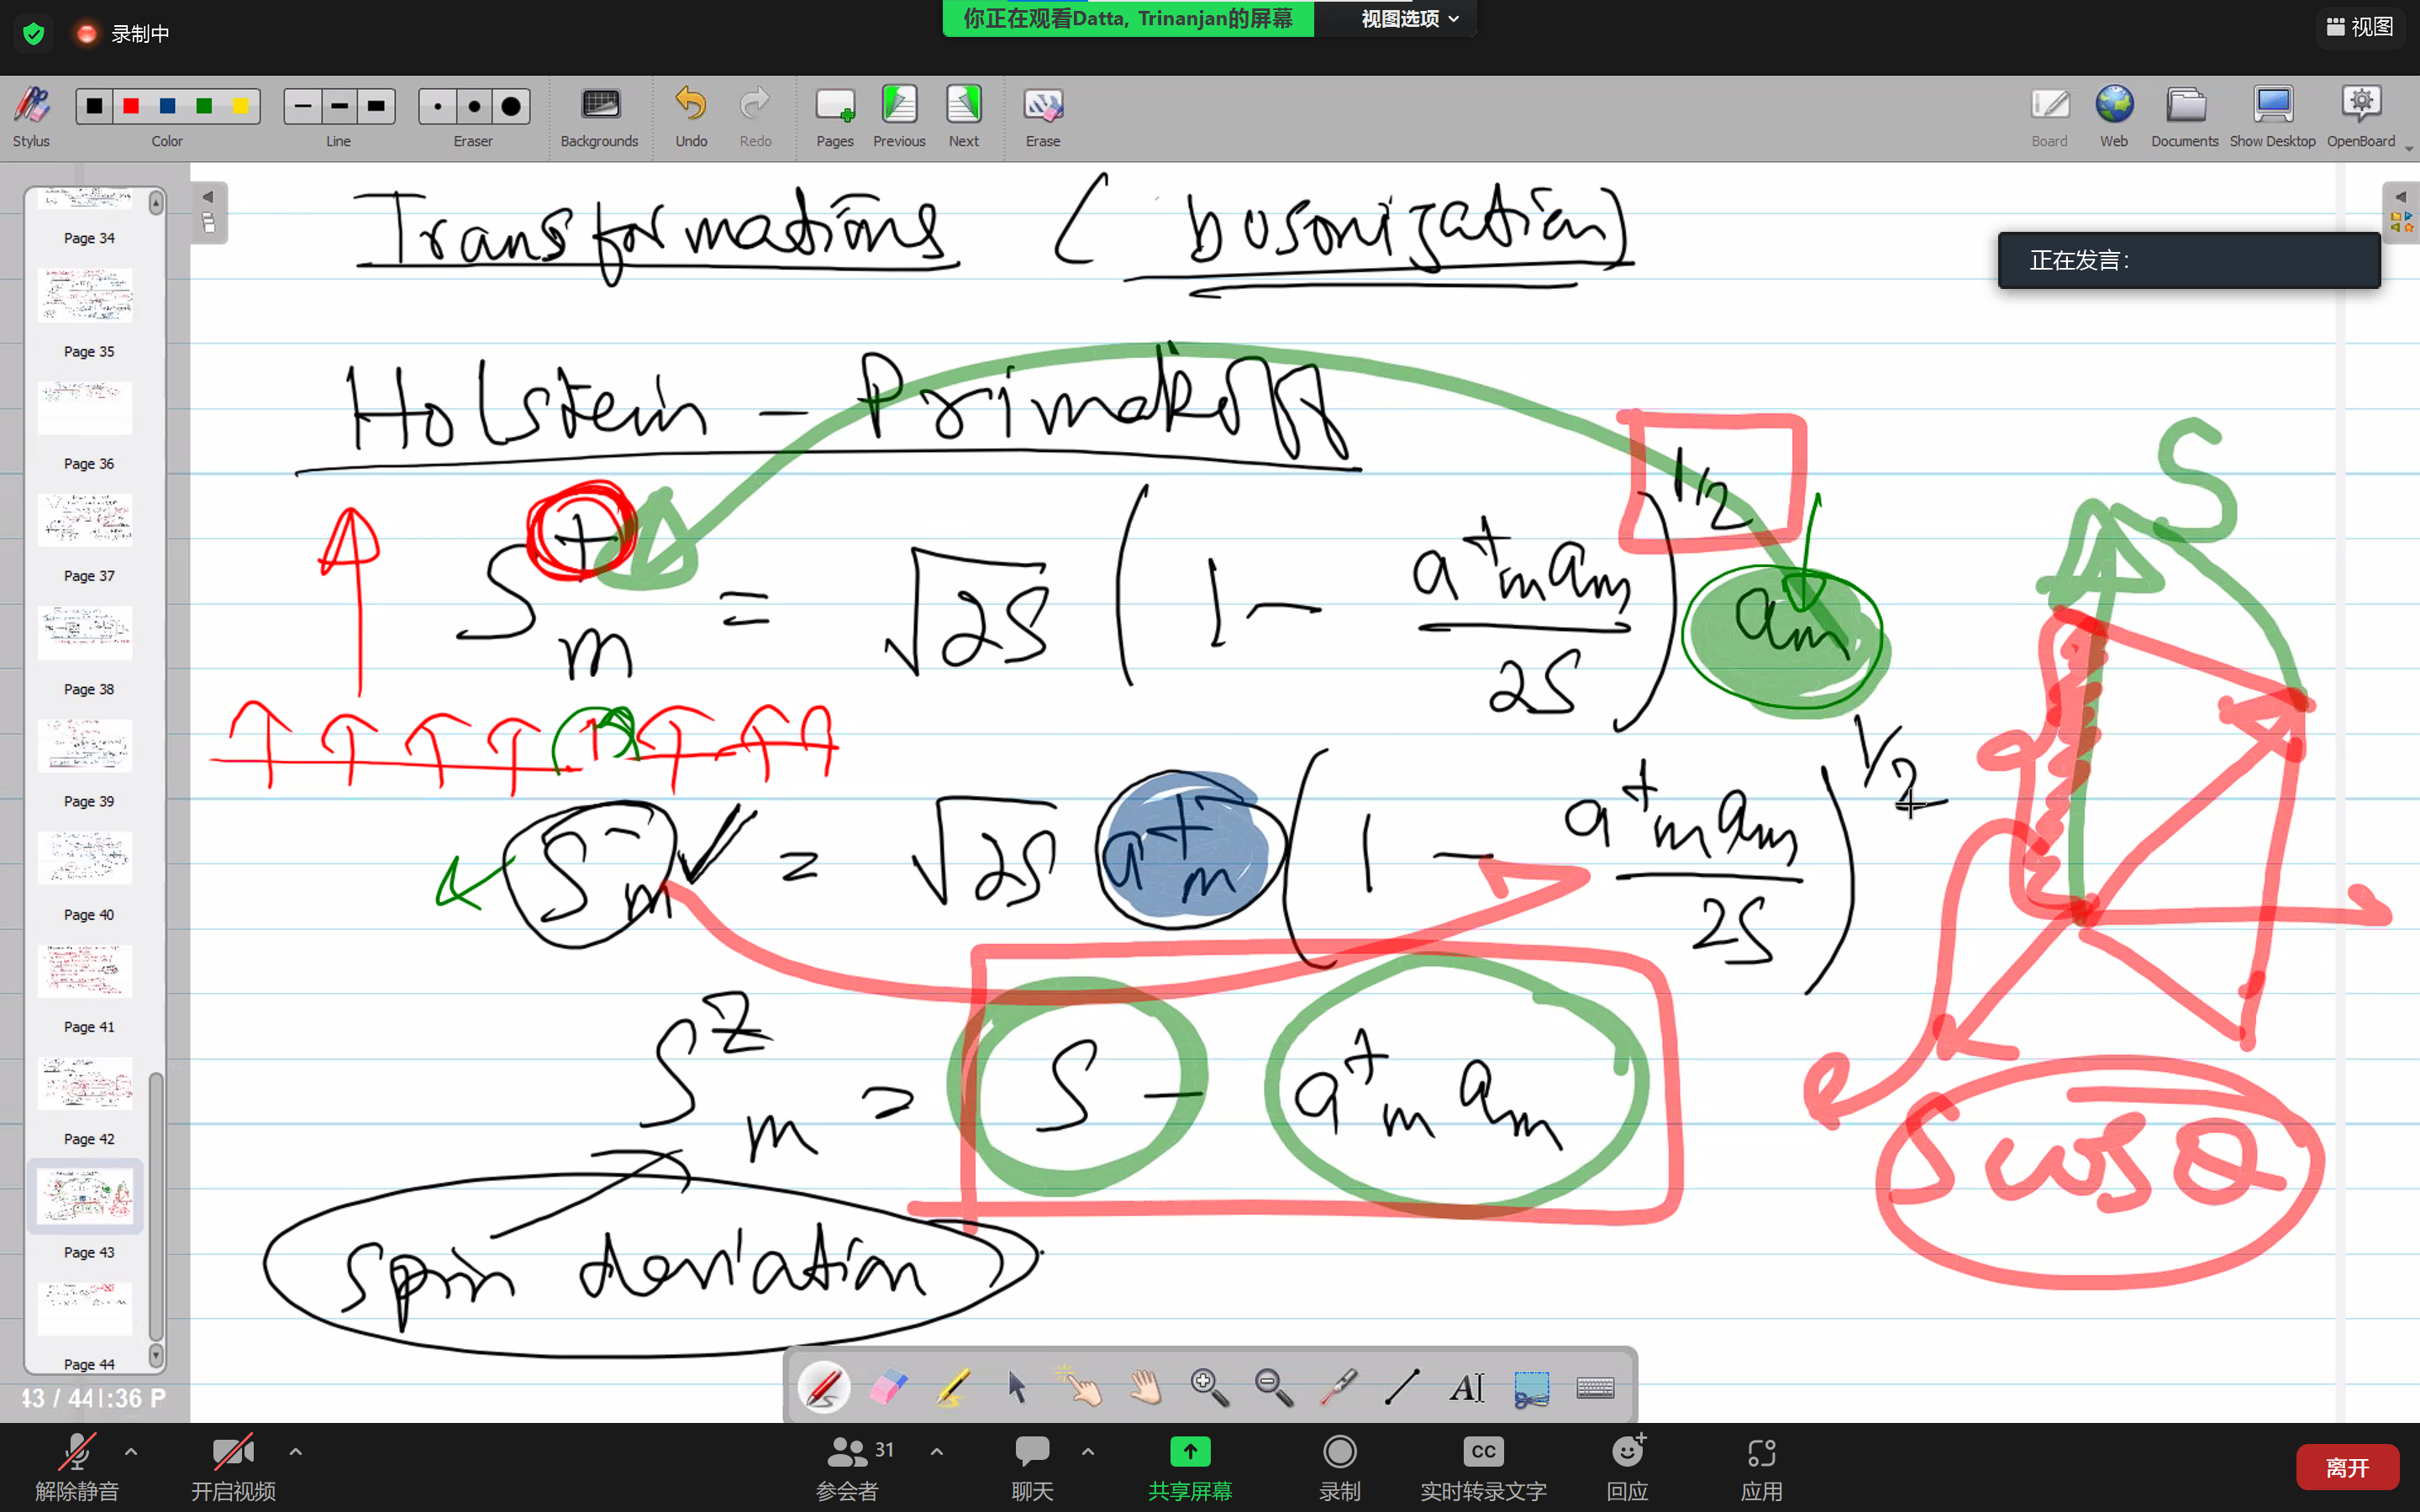 你正在观看Datta, Trinanjan的屏幕 视图选项
录制中
视图
Stylus Color Line Eraser Backgrounds Undo Redo Pages Previous Next Erase Board Web Documents Show Desktop OpenBoard
正在发言:
Page 34
Page 35
Page 36
Page 37
Page 38
Page 39
Page 40
Page 41
Page 42
Page 43
Page 44
Transformations (bosonization)
Holstein - Primakoff
S⁺ₘ = √2S (1 - a⁺ₘaₘ/2S)^1/2 aₘ
S⁻ₘ = √2S a⁺ₘ (1 - a⁺ₘaₘ/2S)^1/2
Sᶻₘ = S - a⁺ₘaₘ
spin deviation
S
S cosθ
AI
43 / 44
:36 P
解除静音 开启视频 参会者 31 聊天 共享屏幕 录制 CC 实时转录文字 回应 应用 离开